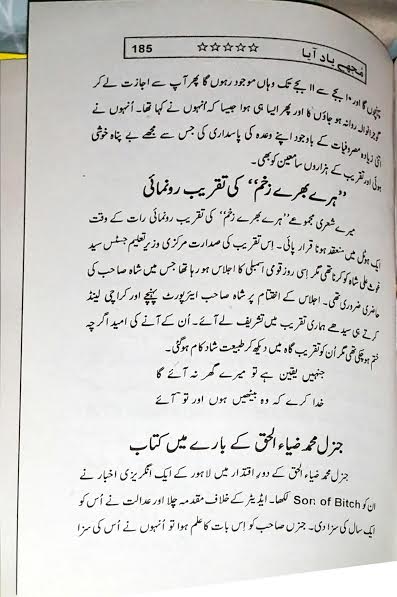 مجھے یاد آیا ☆☆☆☆☆ 185
پہنچوں گا اور ۱۰ بجے سے ۱۱ بجے تک وہاں موجود رہوں گا پھر آپ سے اجازت لے کر
گوجرانوالہ روانہ ہو جاؤں گا اور پھر ایسا ہی ہوا جیسا کہ اُنہوں نے کہا تھا۔ اُنہوں نے
اتنی زیادہ مصروفیات کے باوجود اپنے وعدہ کی پاسداری کی جس سے مجھے بے پناہ خوشی
ہوئی اور تقریب کے ہزاروں سامعین کو بھی۔
”ہرے بھرے زخم“ کی تقریب رونمائی
میرے شعری مجموعے ”ہرے بھرے زخم“ کی تقریب رونمائی رات کے وقت
ایک ہوٹل میں منعقد ہونا قرار پائی۔ اِس تقریب کی صدارت مرکزی وزیر تعلیم جسٹس سید
غوث علی شاہ کو کرنا تھی مگر اِسی روز قومی اسمبلی کا اجلاس ہو رہا تھا جس میں شاہ صاحب کی
حاضری ضروری تھی۔ اجلاس کے اختتام پر شاہ صاحب ائیرپورٹ پہنچے اور کراچی لینڈ
کرتے ہی سیدھے ہماری تقریب میں تشریف لے آئے۔ اُن کے آنے کی امید اگرچہ
ختم ہو چکی تھی مگر اُن کو تقریب گاہ میں دیکھ کر طبیعت شاد کام ہو گئی۔
جنہیں یقین ہے تو میرے گھر نہ آئے گا
خدا کرے کہ وہ بیٹھیں ہوں اور تو آئے
جنرل محمد ضیاء الحق کے بارے میں کتاب
جنرل محمد ضیاء الحق کے دورِ اقتدار میں لاہور کے ایک انگریزی اخبار نے
ان کو Son of Bitch لکھا۔ ایڈیٹر کے خلاف مقدمہ چلا اور عدالت نے اُس کو
ایک سال کی سزا دی۔ جنرل صاحب کو اِس بات کا علم ہوا تو اُنہوں نے اُس کی سزا